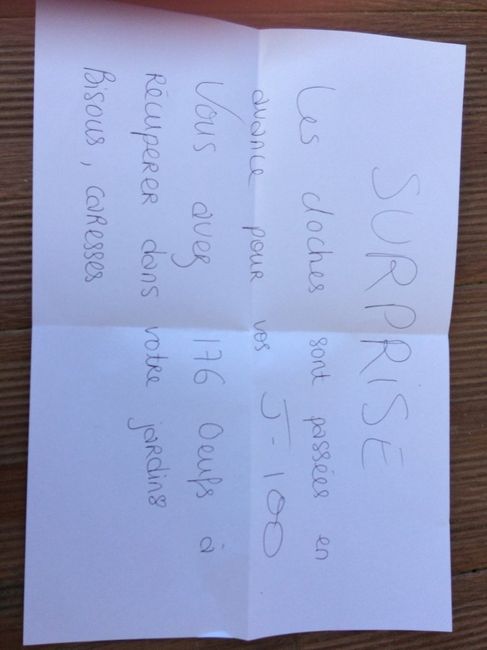 SURPRISE
Les cloches sont passées en
avance pour vos J-100
Vous avez 176 Oeufs à
RécupeRER dans votre jardins
Bisous, caresses